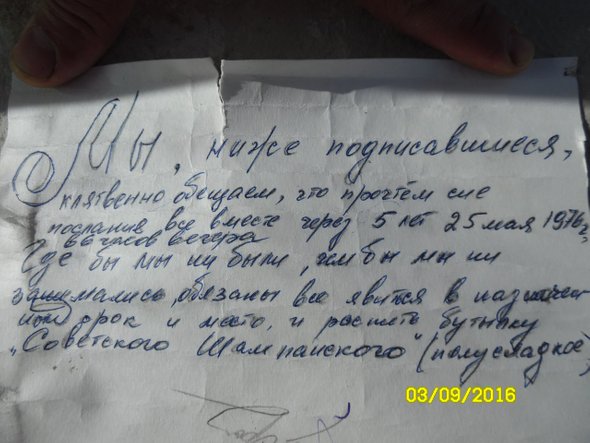 Мы, ниже подписавшиеся,
клятвенно обещаем, что прочтём сие
послание все вместе через 5 лет 25 мая 1976 г,
в 6 часов вечера
Где бы мы ни были, чем бы мы ни
занимались, обязаны все явится в назначен
ный срок и место, и распить бутылку
„Советского Шампанского" (полусладкое)
03/09/2016